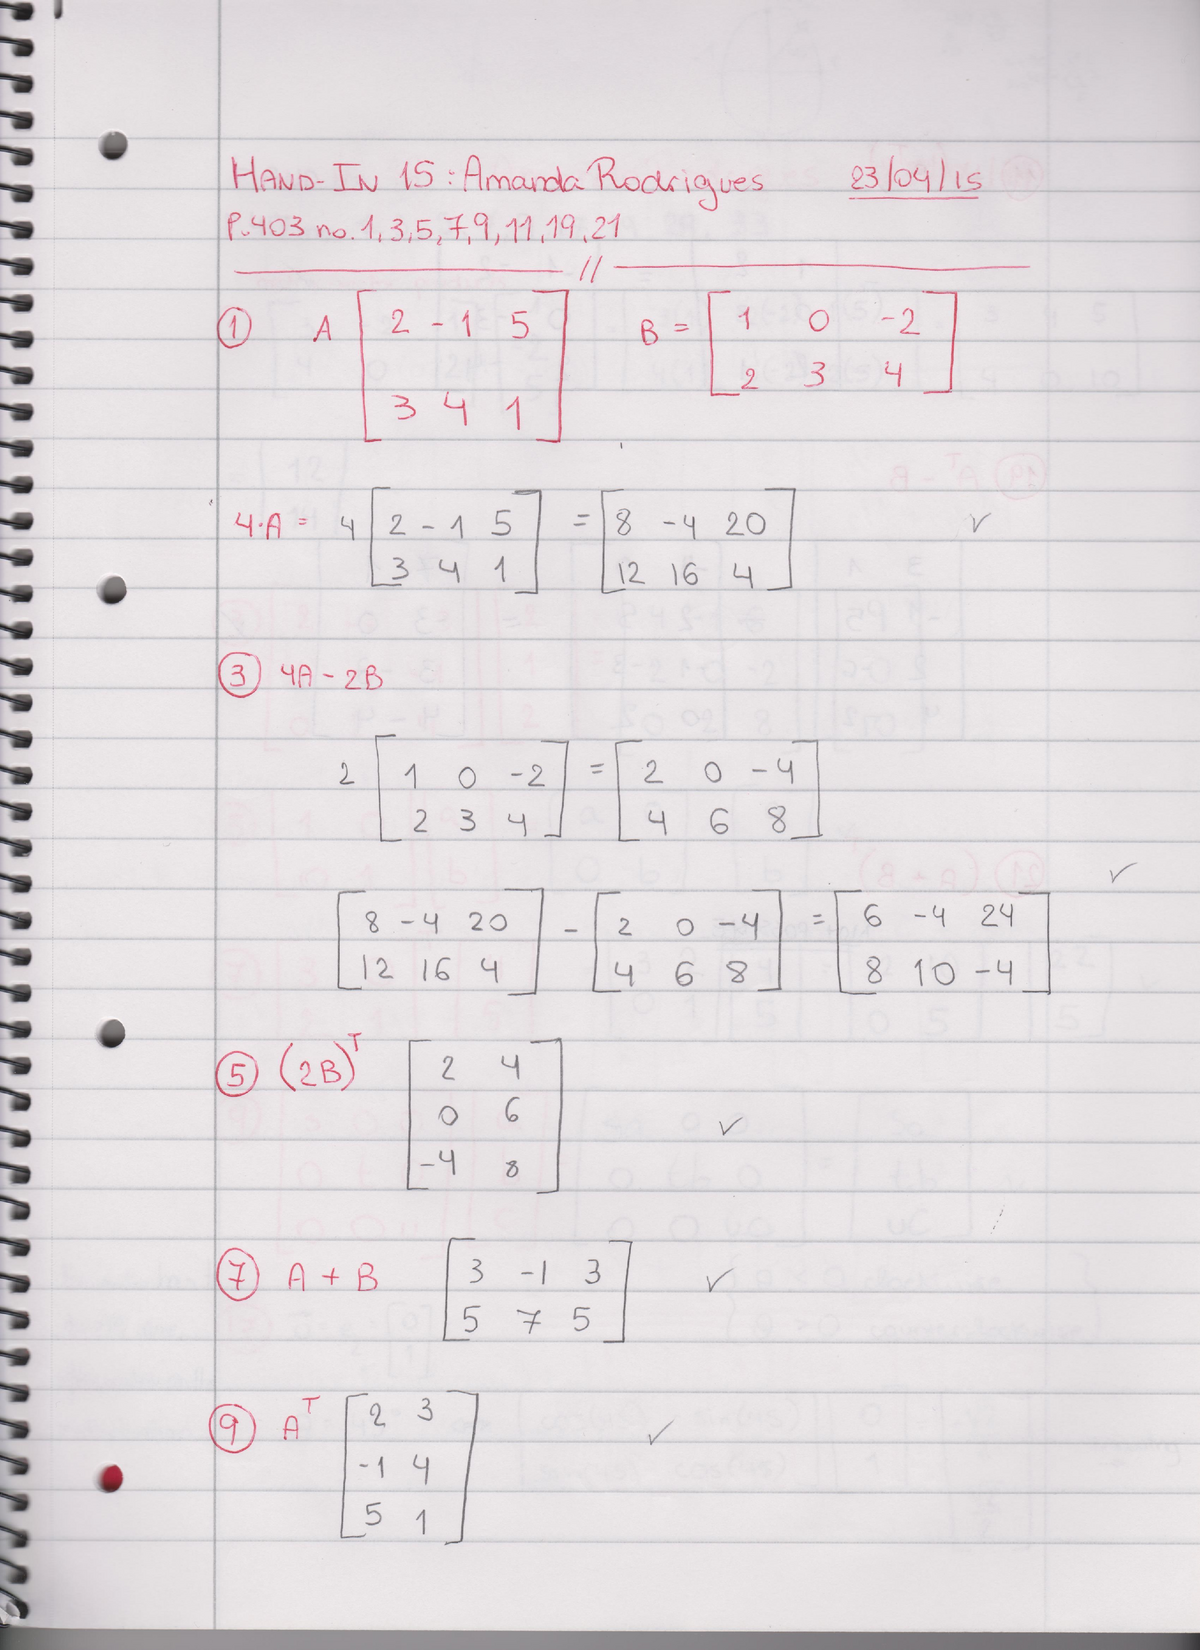 HAND-IN 15: Amanda Rodrigues 23/04/15
P.403 no. 1, 3, 5, 7, 9, 11, 19, 21
//
① A [2 -1 5 B = [1 0 -2
3 4 1] 2 3 4]
4·A = 4 [2 -1 5 = [8 -4 20 ✓
3 4 1] 12 16 4]
③ 4A - 2B
2 [1 0 -2 = [2 0 -4
2 3 4] 4 6 8]
✓
[8 -4 20 - [2 0 -4 = [6 -4 24
12 16 4] 4 6 8] 8 10 -4]
⑤ (2B)ᵀ [2 4
0 6 ✓
-4 8]
⑦ A + B [3 -1 3 ✓
5 7 5]
⑨ Aᵀ [2 3 ✓
-1 4
5 1]